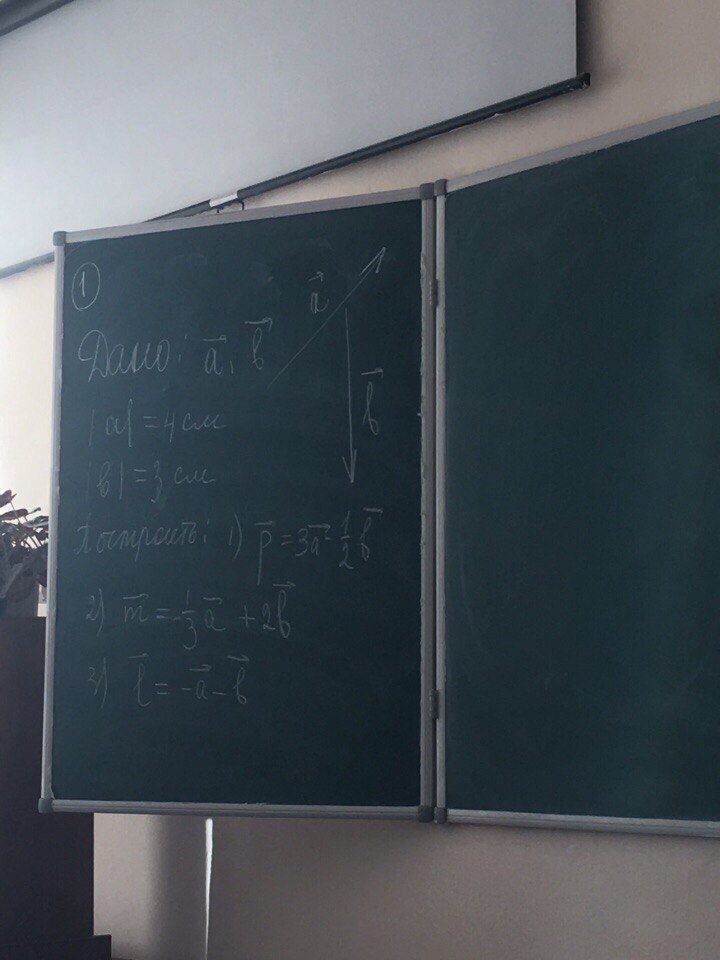 1
a⃗
Дано: a⃗, b⃗
b⃗
|a| = 4 см
|b| = 3 см
Построить: 1) p⃗ = 3a⃗ - 1/2 b⃗
2) m⃗ = -1/3 a⃗ + 2b⃗
3) l⃗ = -a⃗ - b⃗